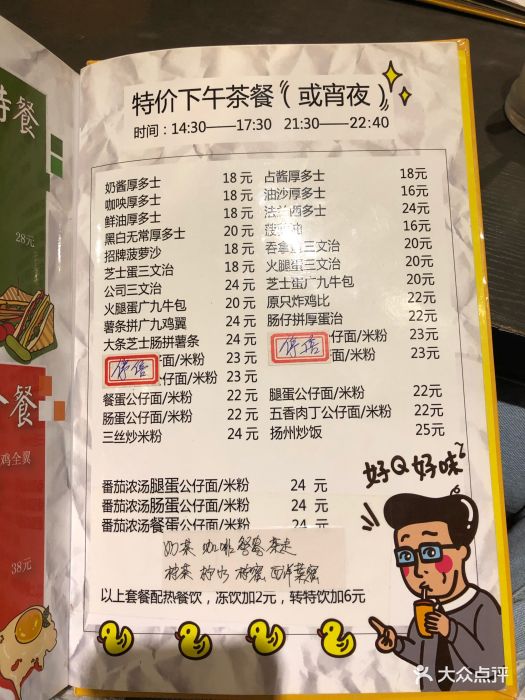 特餐
28元
餐
鸡全翼
38元
特价下午茶餐(或宵夜)
时间:14:30——17:30 21:30——22:40
奶酱厚多士 18元
咖央厚多士 18元
鲜油厚多士 18元
黑白无常厚多士 20元
招牌菠萝沙 18元
芝士蛋三文治 18元
公司三文治 24元
火腿蛋广九牛包 20元
薯条拼广九鸡翼 24元
大条芝士肠拼薯条 24元
停售 面/米粉 23元
公仔面/米粉 23元
餐蛋公仔面/米粉 22元
肠蛋公仔面/米粉 22元
三丝炒米粉 24元
占酱厚多士 18元
油沙厚多士 16元
法兰西多士 24元
16元
吞拿蛋三文治 20元
火腿蛋三文治 20元
芝士蛋广九牛包 20元
原只炸鸡比 22元
肠仔拼厚蛋治 22元
停售 公仔面/米粉 23元
面/米粉 23元
腿蛋公仔面/米粉 22元
五香肉丁公仔面/米粉 22元
扬州炒饭 25元
好Q好味
番茄浓汤腿蛋公仔面/米粉 24元
番茄浓汤肠蛋公仔面/米粉 24元
番茄浓汤餐蛋公仔面/米粉 24元
奶茶 咖啡 鸳鸯 茶走
柠茶 柠水 柠蜜 西洋菜蜜
以上套餐配热餐饮，冻饮加2元，转特饮加6元
大众点评